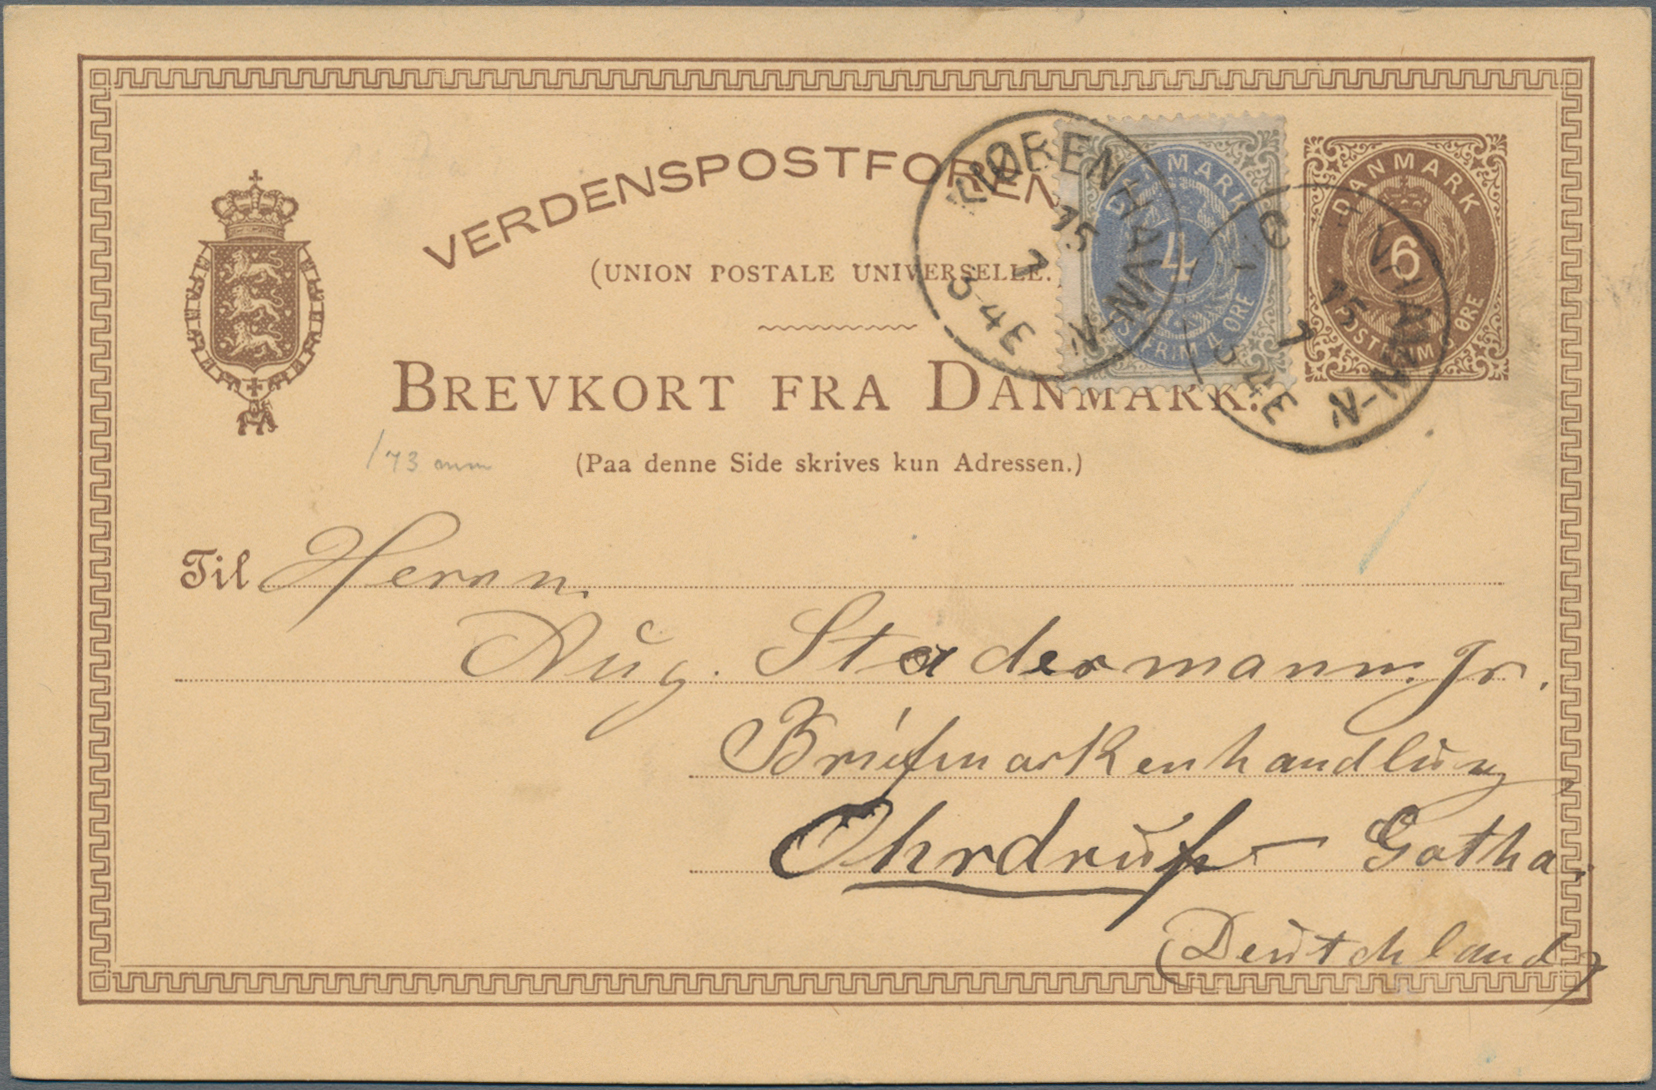 VERDENSPOSTFORENI
(UNION POSTALE UNIVERSELLE.
BREVKORT FRA DANMARK.
(Paa denne Side skrives kun Adressen.)
KJØBENHAVN N-N
15
7
3-4E
DANMARK
4
POSTFRIM. 4 ØRE
15
7
3-4E
N-N
DANMARK
6
POSTFRIM. 6 ØRE
173 mm
Til Herrn
Aug. Stadermann jr.
Briefmarkenhandlung
Ohrdruf Gotha.
(Deutchland)